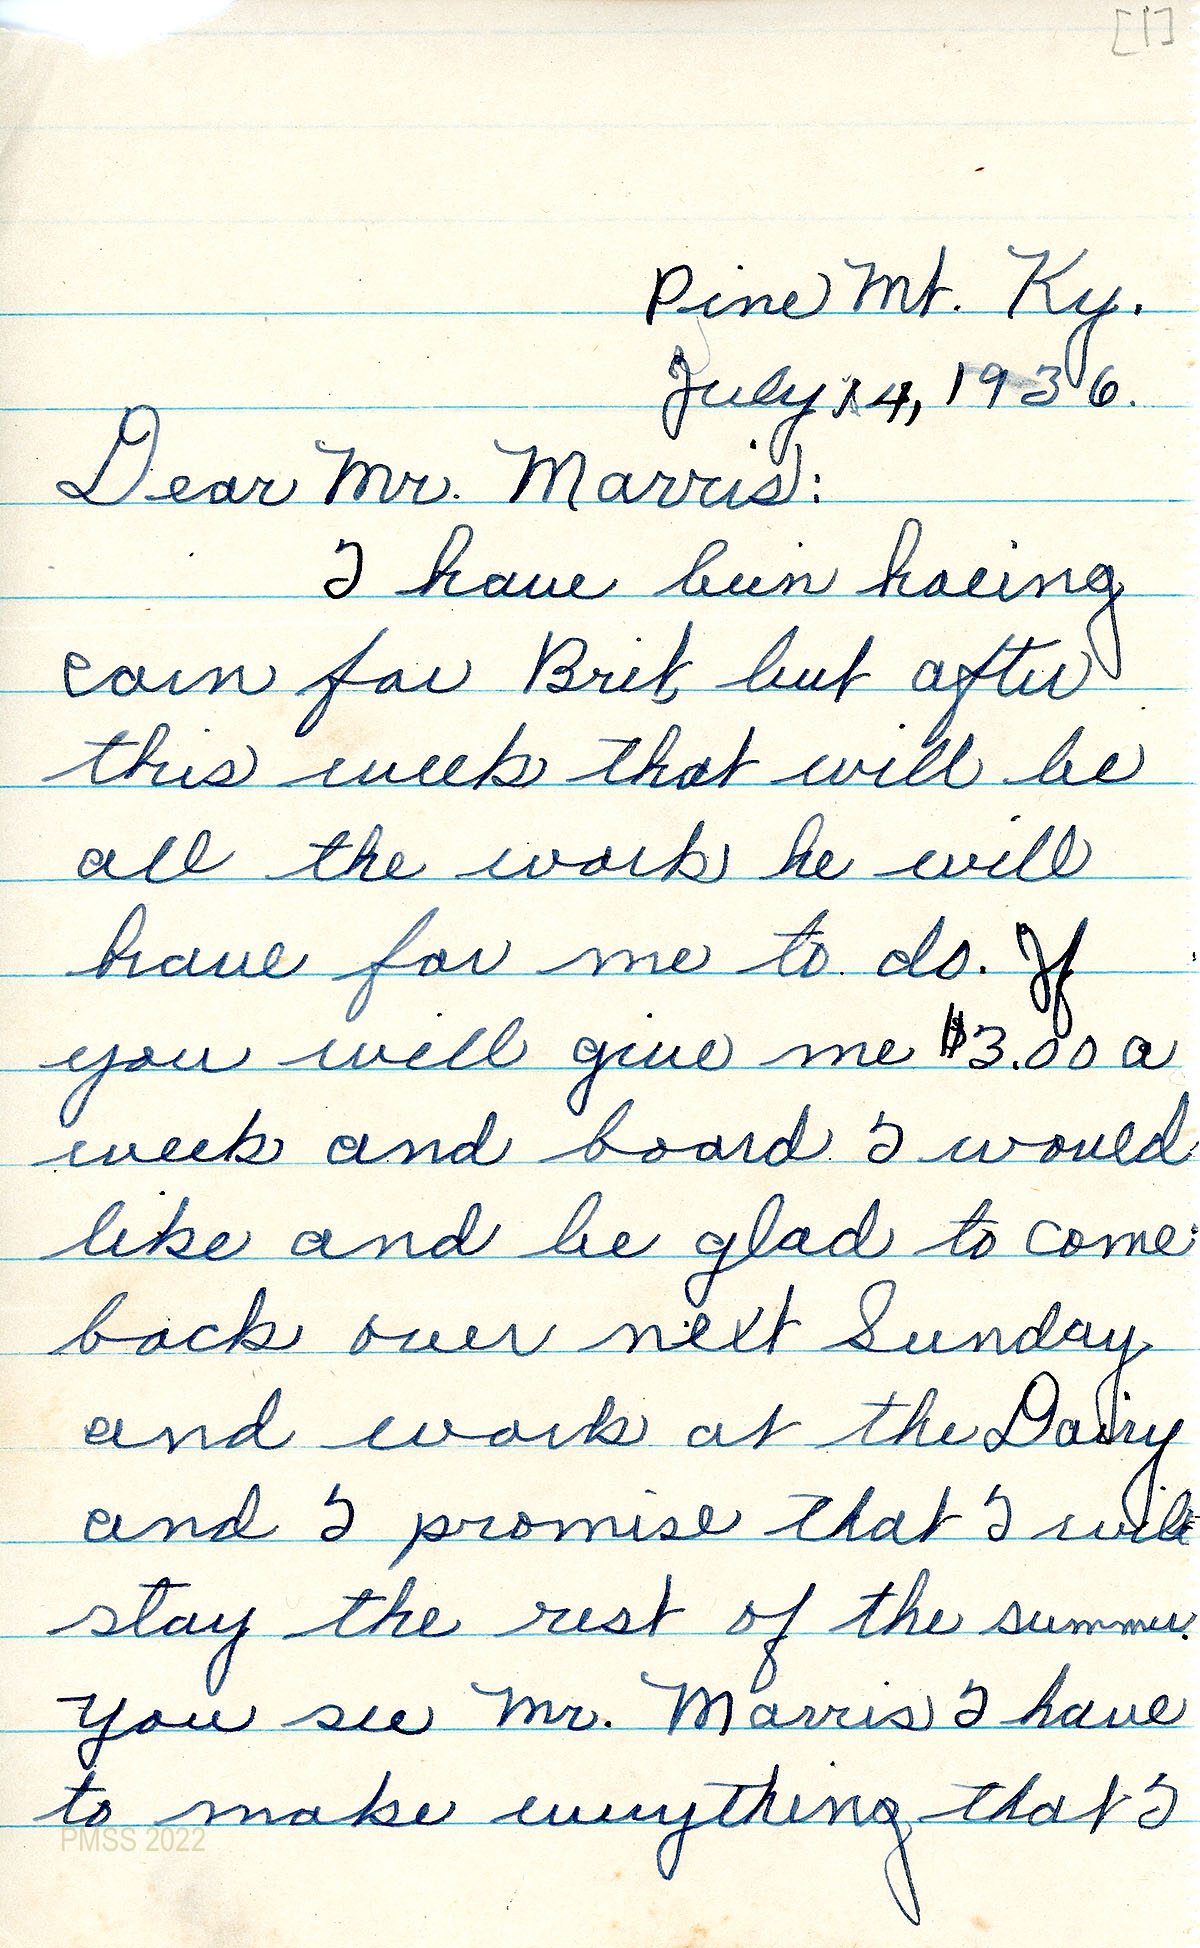 [1]
Pine Mt. Ky.
July 14, 1936.
Dear Mr. Marris:
I have bein hoeing
corn for Brit, but after
this week that will be
all the work he will
have for me to do. If
you will give me $3.00 a
week and board I would
like and be glad to come
back over next Sunday
and work at the Dairy
and I promise that I will
stay the rest of the summer.
You see Mr. Marris I have
to make everything that I
PMSS 2022